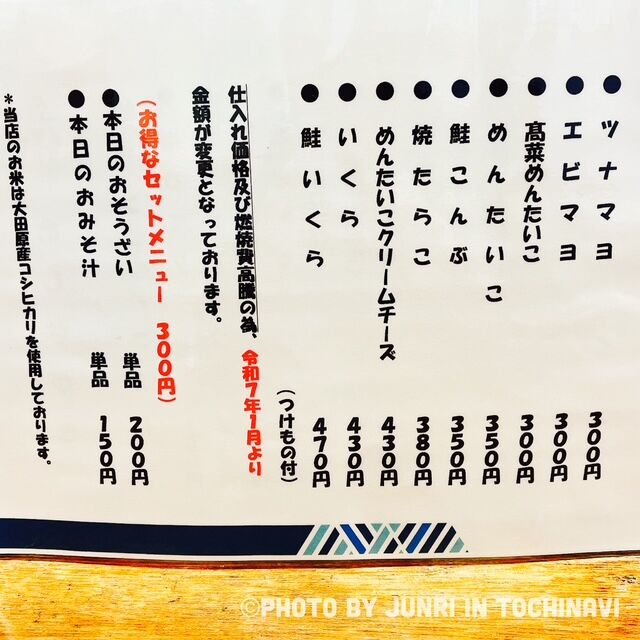 ●ツナマヨ 300円
●エビマヨ 300円
●高菜めんたいこ 300円
●めんたいこ 350円
●鮭こんぶ 350円
●焼たらこ 380円
●めんたいこクリームチーズ 430円
●いくら 430円
●鮭いくら 470円
(つけもの付)
仕入れ価格及び燃焼費高騰の為、令和7年1月より
金額が変更となっております。
(お得なセットメニュー 300円)
●本日のおそうざい 単品 200円
●本日のおみそ汁 単品 150円
*当店のお米は大田原産コシヒカリを使用しております。
©PHOTO BY JUNRI IN TOCHINAVI